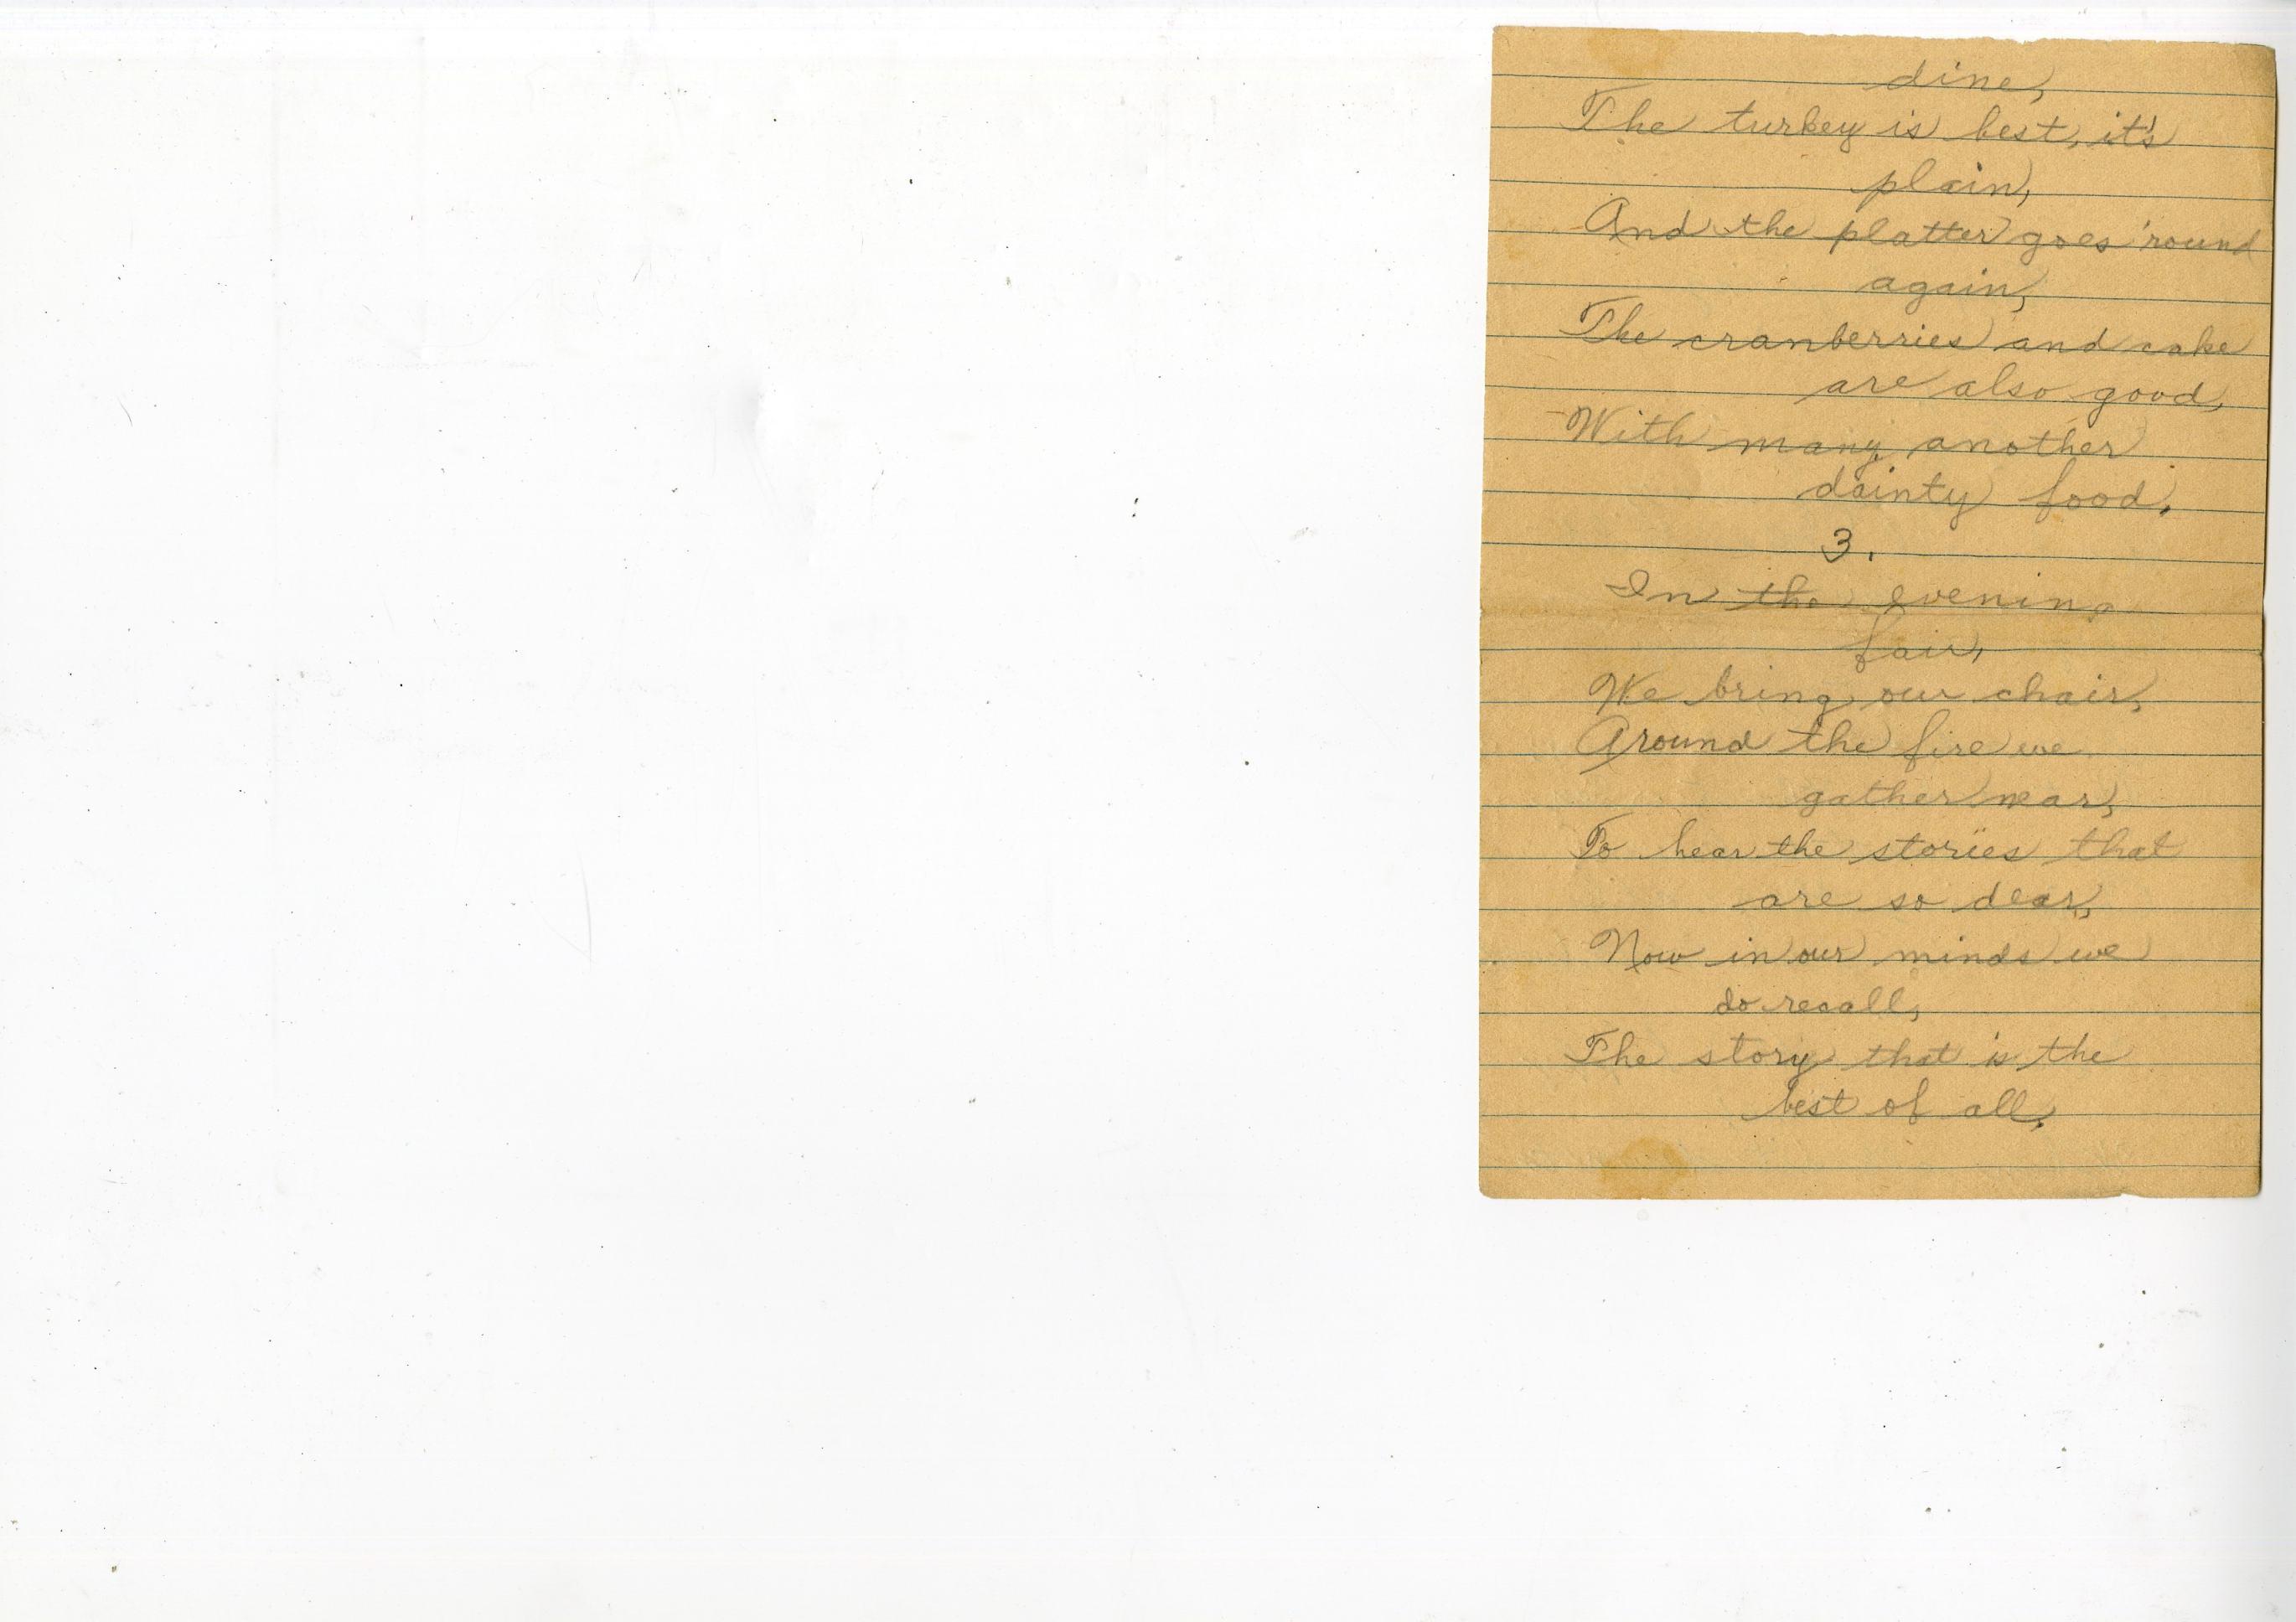 dine,
The turkey is best, it's
plain,
And the platter goes 'round
again,
The cranberries and cake
are also good,
With many another
dainty food.
3.
In the evening
fair,
We bring our chair,
Around the fire we
gather near,
To hear the stories that
are so dear,
Now in our minds we
do recall,
The story that is the
best of all.